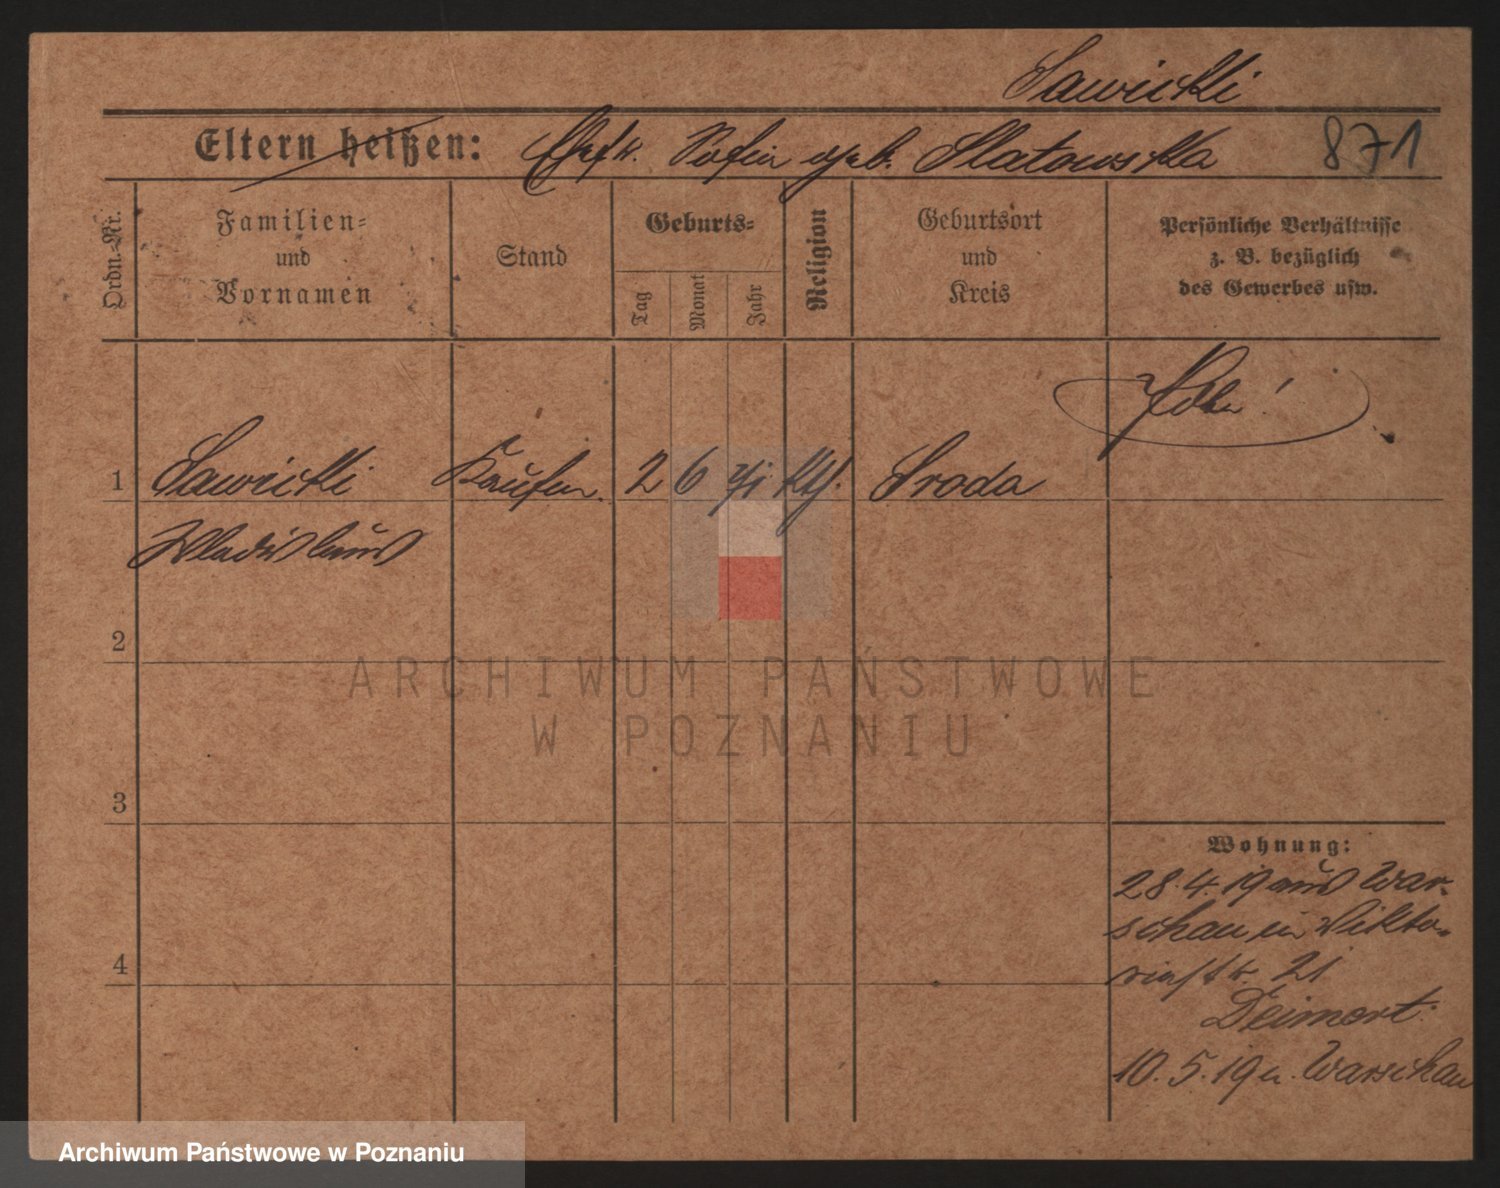 Sawicki
Eltern heißen: Ehefr. Sofia geb. Slatowska 871
Ordn.-Nr.
Familien-
und
Vornamen
Stand
Geburts-
Tag
Monat
Jahr
Religion
Geburtsort
und
Kreis
Persönliche Verhältnisse
z. B. bezüglich
des Gewerbes usw.
Pole!
1 Sawicki Kaufm. 2 6 kth. Sroda
Wladislaus
2
3
4
Wohnung:
28.4.19 aus War-
schau in Vikto-
riastr. 21
10.5.19 n. Warschau
ARCHIWUM PAŃSTWOWE
W POZNANIU
Archiwum Państwowe w Poznaniu